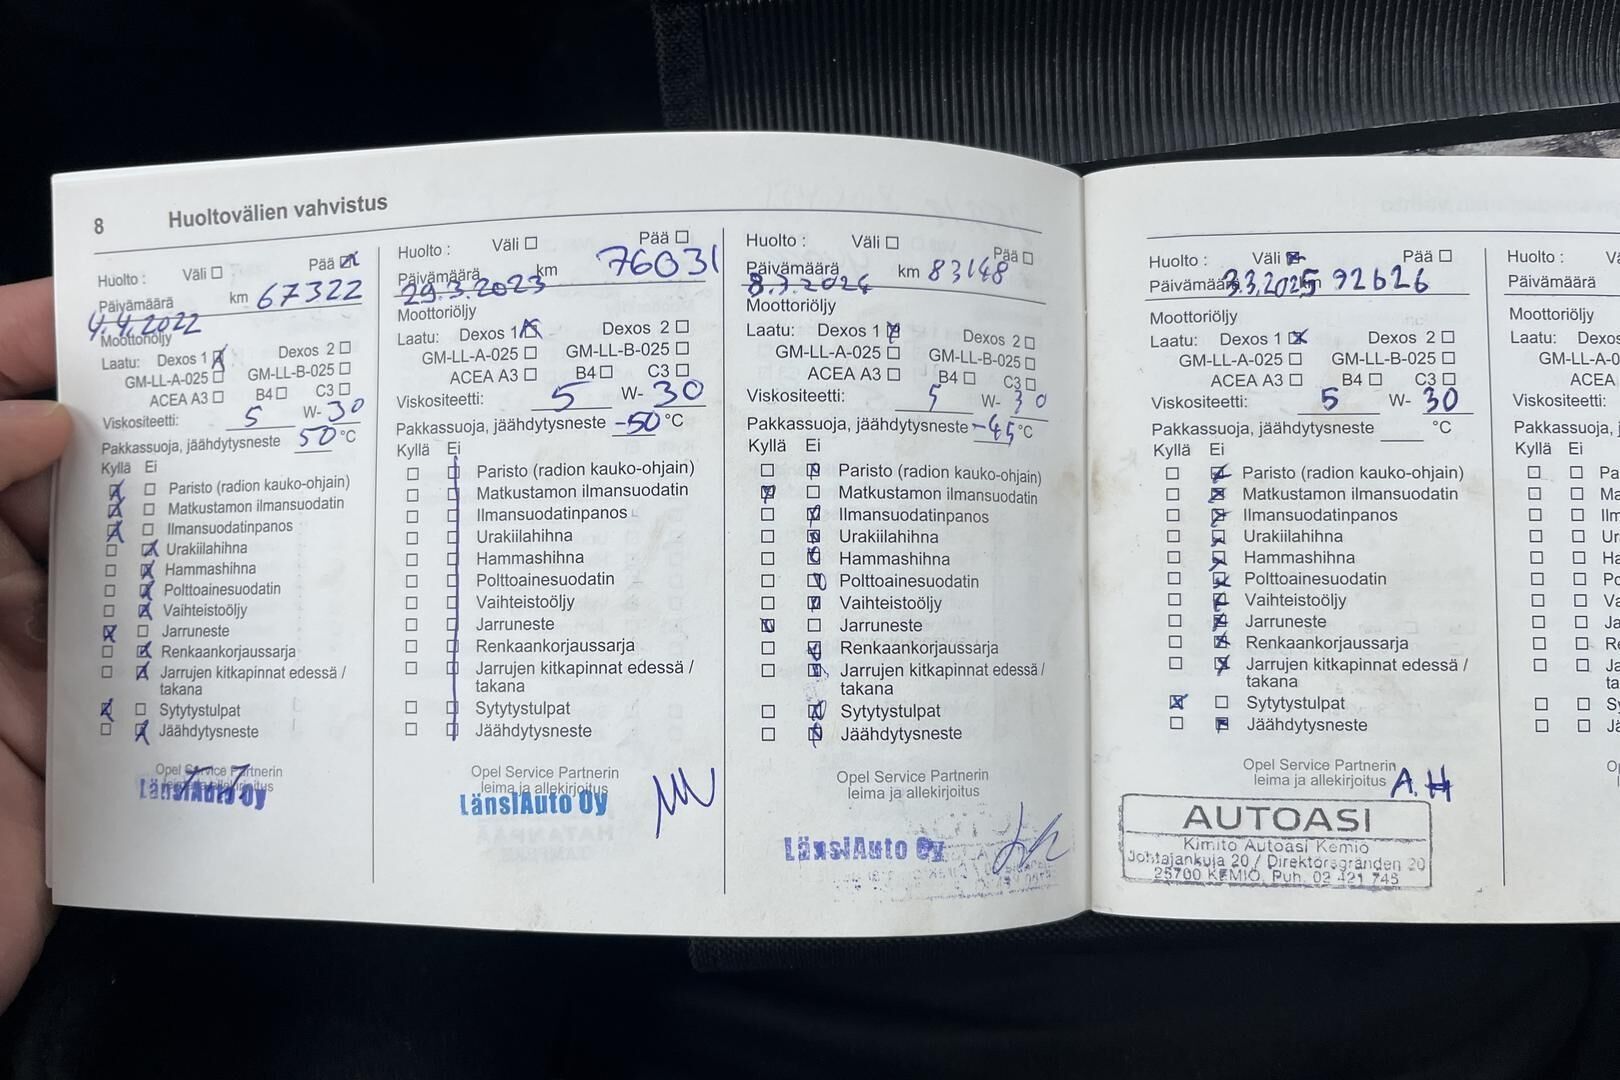 8 Huoltovälien vahvistus
Huolto : Väli ☐ Pää ☒
Päivämäärä km 67322
4.4.2022
Moottoriöljy
Laatu: Dexos 1 ☒ Dexos 2 ☐
GM-LL-A-025 ☐ GM-LL-B-025 ☐
ACEA A3 ☐ B4 ☐ C3 ☐
Viskositeetti: 5 W- 30
Pakkassuoja, jäähdytysneste 50 °C
Kyllä Ei
☒ ☐ Paristo (radion kauko-ohjain)
☒ ☐ Matkustamon ilmansuodatin
☒ ☐ Ilmansuodatinpanos
☐ ☒ Urakiilahihna
☐ ☒ Hammashihna
☐ ☒ Polttoainesuodatin
☐ ☒ Vaihteistoöljy
☒ ☐ Jarruneste
☐ ☒ Renkaankorjaussarja
☐ ☒ Jarrujen kitkapinnat edessä /
takana
☒ ☐ Sytytystulpat
☐ ☒ Jäähdytysneste
Opel Service Partnerin
leima ja allekirjoitus
LänsiAuto Oy
Huolto : Väli ☐ Pää ☐
Päivämäärä km 76031
29.3.2023
Moottoriöljy
Laatu: Dexos 1 ☒ Dexos 2 ☐
GM-LL-A-025 ☐ GM-LL-B-025 ☐
ACEA A3 ☐ B4 ☐ C3 ☐
Viskositeetti: 5 W- 30
Pakkassuoja, jäähdytysneste -50 °C
Kyllä Ei
☐ ☐ Paristo (radion kauko-ohjain)
☐ ☐ Matkustamon ilmansuodatin
☐ ☐ Ilmansuodatinpanos
☐ ☐ Urakiilahihna
☐ ☐ Hammashihna
☐ ☐ Polttoainesuodatin
☐ ☐ Vaihteistoöljy
☐ ☐ Jarruneste
☐ ☐ Renkaankorjaussarja
☐ ☐ Jarrujen kitkapinnat edessä /
takana
☐ ☐ Sytytystulpat
☐ ☐ Jäähdytysneste
Opel Service Partnerin
leima ja allekirjoitus
LänsiAuto Oy
Huolto : Väli ☐ Pää ☐
Päivämäärä km 83148
8.3.2024
Moottoriöljy
Laatu: Dexos 1 ☒ Dexos 2 ☐
GM-LL-A-025 ☐ GM-LL-B-025 ☐
ACEA A3 ☐ B4 ☐ C3 ☐
Viskositeetti: 5 W- 30
Pakkassuoja, jäähdytysneste -45 °C
Kyllä Ei
☐ ☒ Paristo (radion kauko-ohjain)
☒ ☐ Matkustamon ilmansuodatin
☐ ☒ Ilmansuodatinpanos
☐ ☒ Urakiilahihna
☐ ☒ Hammashihna
☐ ☒ Polttoainesuodatin
☐ ☒ Vaihteistoöljy
☒ ☐ Jarruneste
☐ ☒ Renkaankorjaussarja
☐ ☒ Jarrujen kitkapinnat edessä /
takana
☐ ☒ Sytytystulpat
☐ ☒ Jäähdytysneste
Opel Service Partnerin
leima ja allekirjoitus
LänsiAuto Oy
Huolto : Väli ☒ Pää ☐
Päivämäärä 3.3.2025 km 92626
Moottoriöljy
Laatu: Dexos 1 ☒ Dexos 2 ☐
GM-LL-A-025 ☐ GM-LL-B-025 ☐
ACEA A3 ☐ B4 ☐ C3 ☐
Viskositeetti: 5 W- 30
Pakkassuoja, jäähdytysneste °C
Kyllä Ei
☐ ☒ Paristo (radion kauko-ohjain)
☐ ☒ Matkustamon ilmansuodatin
☐ ☒ Ilmansuodatinpanos
☐ ☒ Urakiilahihna
☐ ☒ Hammashihna
☐ ☒ Polttoainesuodatin
☐ ☒ Vaihteistoöljy
☐ ☒ Jarruneste
☐ ☒ Renkaankorjaussarja
☐ ☒ Jarrujen kitkapinnat edessä /
takana
☒ ☐ Sytytystulpat
☐ ☒ Jäähdytysneste
Opel Service Partnerin
leima ja allekirjoitus
A.H
AUTOASI
Kimito Autoasi Kemiö
Johtajankuja 20 / Direktörsgränden 20
25700 KEMIÖ, Puh. 02 421 745
Huolto :
Päivämäärä
Moottoriöljy
Laatu:
GM-LL
ACEA
Viskositeetti:
Pakkassuoja,
Kyllä Ei